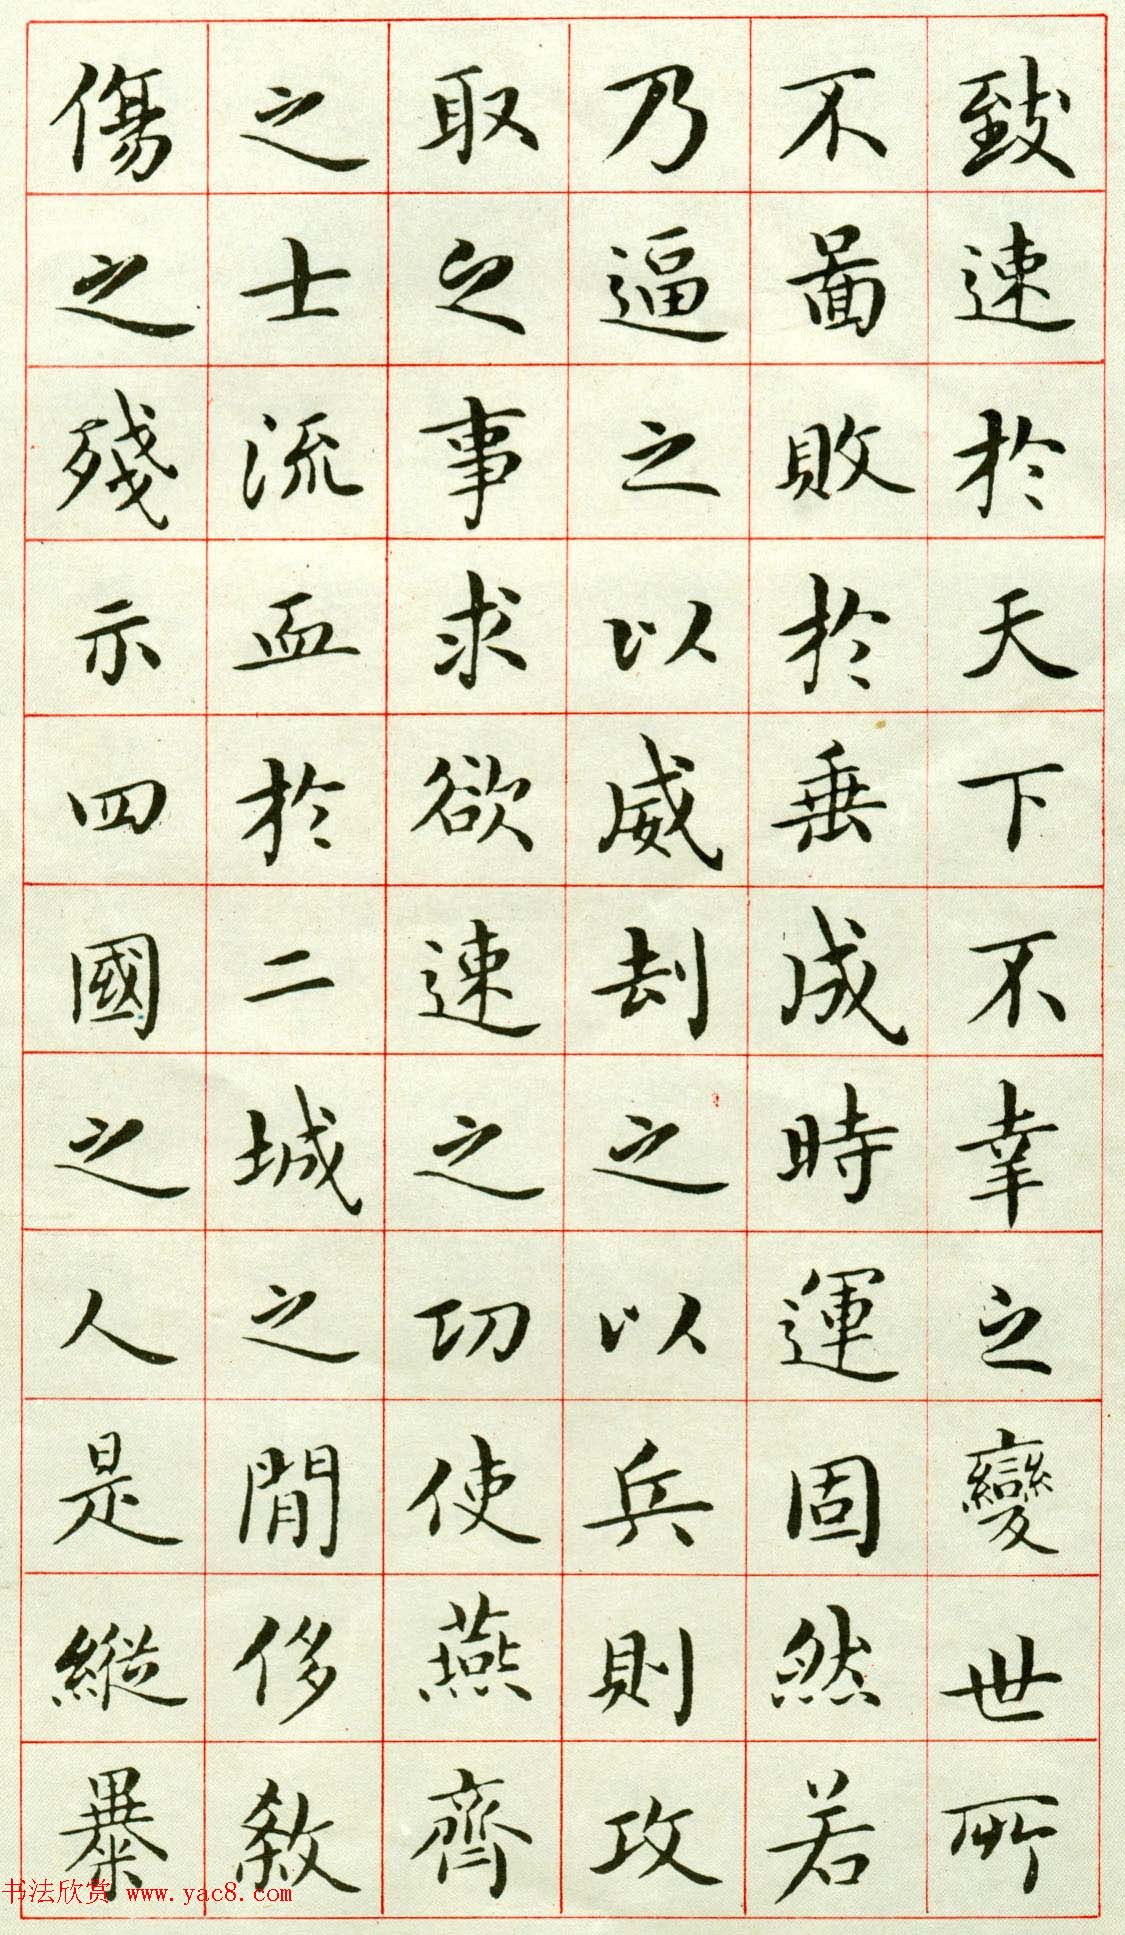 致速於天下不幸之變世所
不啚敗於垂成時運固然若
乃逼之以威刧之以兵則攻
取之事求欲速之功使燕齊
之士流血於二城之間侈殺
傷之殘示四國之人是縱暴
书法欣赏 www.yac8.com